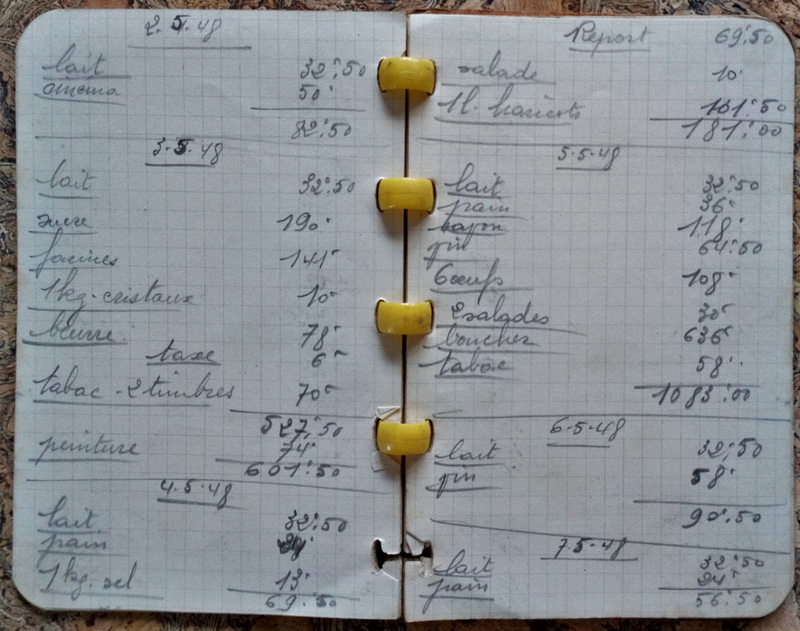 2.5.48
lait 32.50
cinéma 50.
82.50
3.5.48
lait 32.50
sucre 190-
farines 141-
1 kg. cristaux 10-
beurre 78-
taxe 6-
tabac - 2 timbres 70-
527.50
peinture 74-
601.50
4.5.48
lait 32.50
pain
1 kg. sel 13-
69.50
Report 69.50
salade 10.
1l. haricots 101.50
181.00
5.5.48
lait 32.50
pain 36-
savon 118-
vin 64.50
6 œufs 108-
2 salades 30-
boucher 636-
tabac 58.
1083.00
6.5.48
lait 32.50
vin 58.
90.50
7.5.48
lait 32.50
pain 24-
56.50